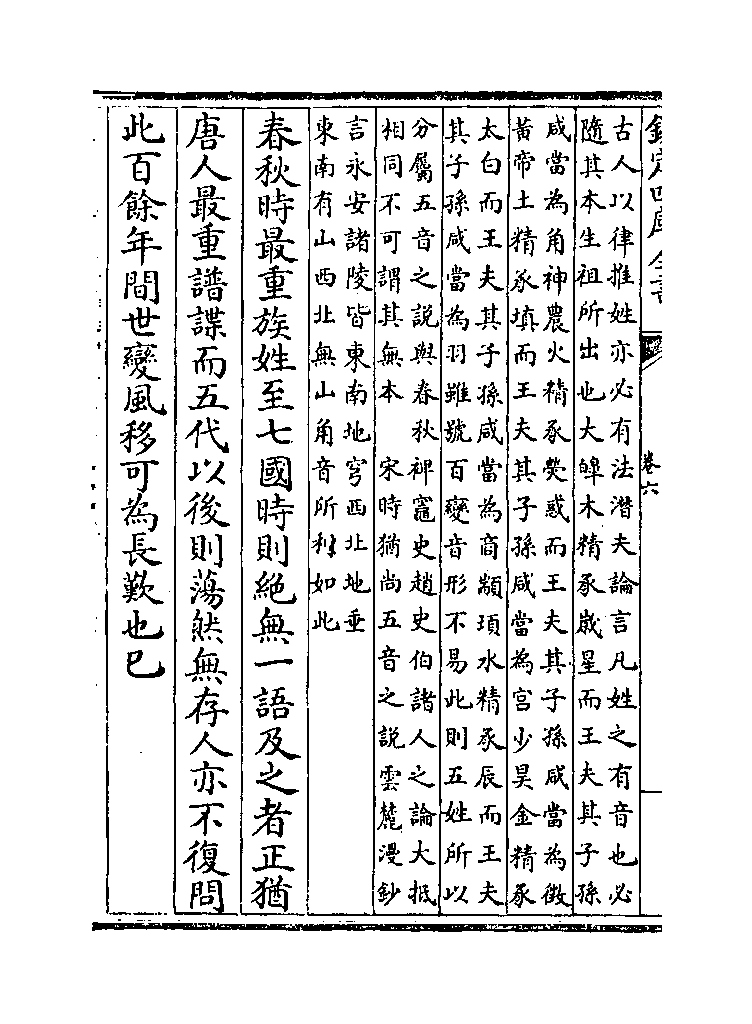 欽定四庫全書
卷六
古人以律推姓亦必有法潛夫論言凡姓之有音也必
隨其本生祖所出也大皥木精承歲星而王夫其子孫
咸當為角神農火精承熒惑而王夫其子孫咸當為徵
黃帝土精承填而王夫其子孫咸當為宮少昊金精承
太白而王夫其子孫咸當為商顓頊水精承辰而王夫
其子孫咸當為羽雖號百變音形不易此則五姓所以
分屬五音之說與春秋裨竈史趙史伯諸人之論大抵
相同不可謂其無本 宋時猶尚五音之說雲麓漫鈔
言永安諸陵皆東南地穹西北地垂
東南有山西北無山角音所利如此
春秋時最重族姓至七國時則絕無一語及之者正猶
唐人最重譜諜而五代以後則蕩然無存人亦不復問
此百餘年間世變風移可為長歎也已